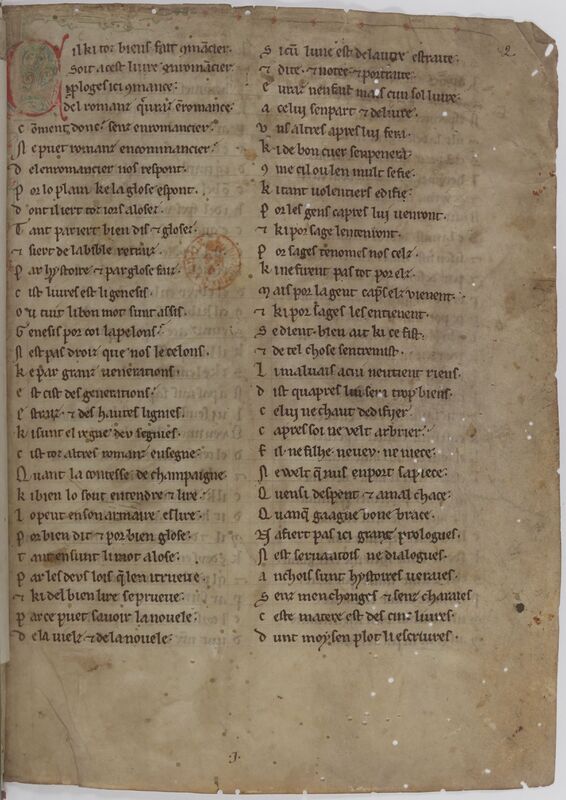 il ki toz biens fait cōmācier
Soit a cest livre enromācier
ploges ici comance
del romanz qͥ uraͥ ēromance
cōment donc senz enromancier
Ne puet romanz encommancier
del enromancier nos respont
Por lo plain ke la glose espont
dont il iert toz iors alosez
Tant par iert bien dis ⁊ glosez
⁊ siert de la bible retraiz
Par hystoire ⁊ par glose faiz
cist livres est li genesis
ou tuit li bon mot sunt assis
Genesis por coi lapelons
Nest pas droiz que nos le celons
ke par granz venerations
est cist des generations
estraiz ⁊ des hautes lignies
ki sunt el regne deu segnies
cist toz altres romanz ensegne
Quant la contesse de champaigne
ki bien lo sout entendre ⁊ lire
lo peut en son armaire eslire
Por bien dit ⁊ por bien glosez
Tant en sunt li mot alosez
Par les deus lois qͥ len i trueve
⁊ ki del bien lire se prueve
Par ce puet savoir la novele
de la vielz ⁊ de la novele
2
Sicū lune est de lautre estraite
⁊ dite ⁊ notee ⁊ portraite
e uraiz nen fut mais cun sol livre
a celui sen part ⁊ delivre
uns altres apres lui fera
ki de bon cuer sen penera
ꝯme cil ou len mult se fie
ki tant volentiers edifie
Por les gens capres lui venront
⁊ ki por sage lentenront
Por sages tenomes nos celz
ki ne firent pas tot por elz
mais por la gent capͬs elz vienent
⁊ ki por sages les entienent
Se dient bien ait ki ce fist
⁊ de tel chose sentremist
Li malvais a cui ne tient riens
dist quapres lui seri trop biens
celui ne chaut dedifyer
capres soi ne velt arbrier
Fil ne filhe nevey ne niece
Ne welt qͥ nus en port sa piece
Quensi despent ⁊ a mal chace
Quanqͥ gaagne bone brace
Nafiert pas ici granz prologues
Nest servatois ne dialogues
anchois sunt hystoires veraies
Senz menchonges ⁊ senz charaies
ceste matere est des cinc livres
dunt moysen plot li escrivres
J.